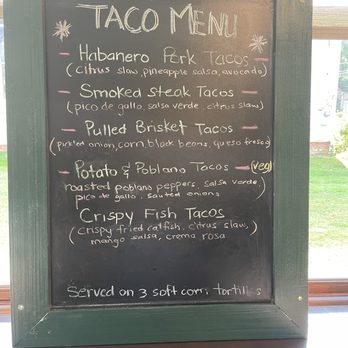 TACO MENU
- Habanero Pork Tacos -
(citrus slaw, pineapple salsa, avocado)
- Smoked Steak Tacos -
(pico de gallo, salsa verde, citrus slaw)
- Pulled Brisket Tacos -
(pickled onion, corn, black beans, queso fresco)
- Potato & Poblano Tacos - (veg)
(roasted poblano peppers, salsa verde,
pico de gallo, sauted onions)
Crispy Fish Tacos
(crispy fried catfish, citrus slaw,
mango salsa, crema rosa)
Served on 3 soft corn tortillas